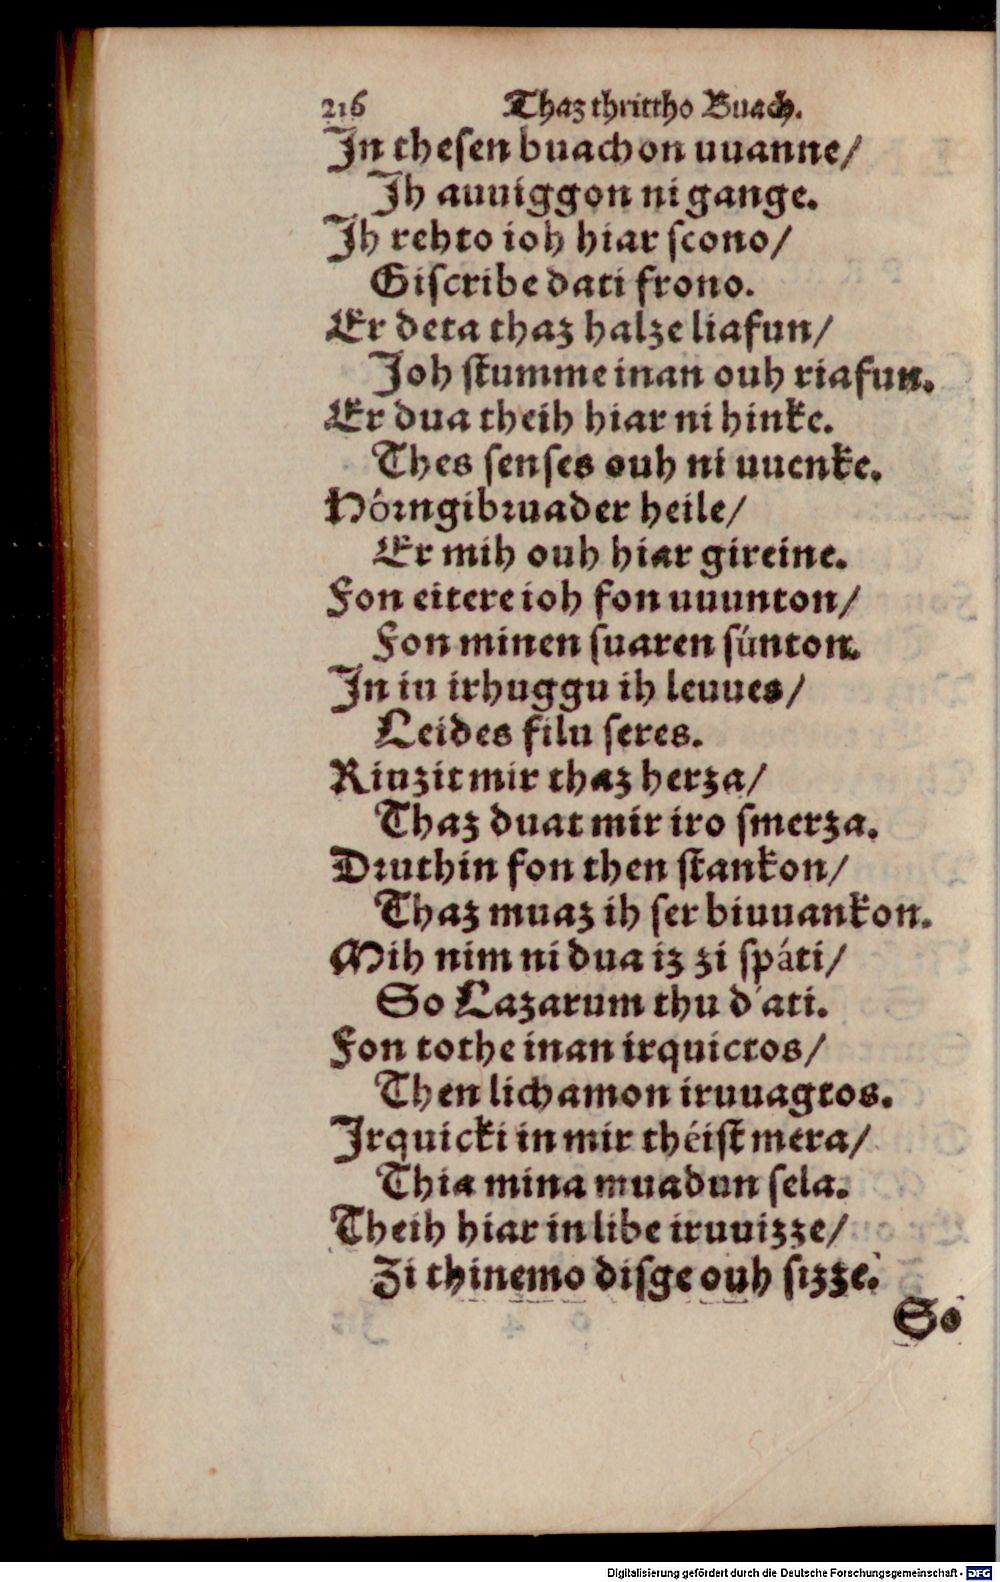 216 Thaz thrittho Buach.
In thesen buachon uuanne/
Ih auuiggon ni gange.
Ih rehto ioh hiar scono/
Giscribe dati frono.
Er deta thaz halze liafun/
Ioh stumme inan ouh riafun.
Er dua theih hiar ni hinke.
Thes senses ouh ni uuenke.
Hôrngibruader heile/
Er mih ouh hiar gireine.
Fon eitere ioh fon uuunton/
Fon minen suaren súnton.
In iu irhuggu ih leuues/
Leides filu seres.
Riuzit mir thaz herza/
Thaz duat mir iro smerza.
Druthin fon then stankon/
Thaz muaz ih ser biuuankon.
Mih nim ni dua iz zi spáti/
So Lazarum thu d'ati.
Fon tothe inan irquictos/
Then lichamon iruuagtos.
Irquicki in mir théist mera/
Thia mina muadun sela.
Theih hiar in libe iruuizze/
Zi thinemo disge ouh sizze.
So
Digitalisierung gefördert durch die Deutsche Forschungsgemeinschaft - DFG